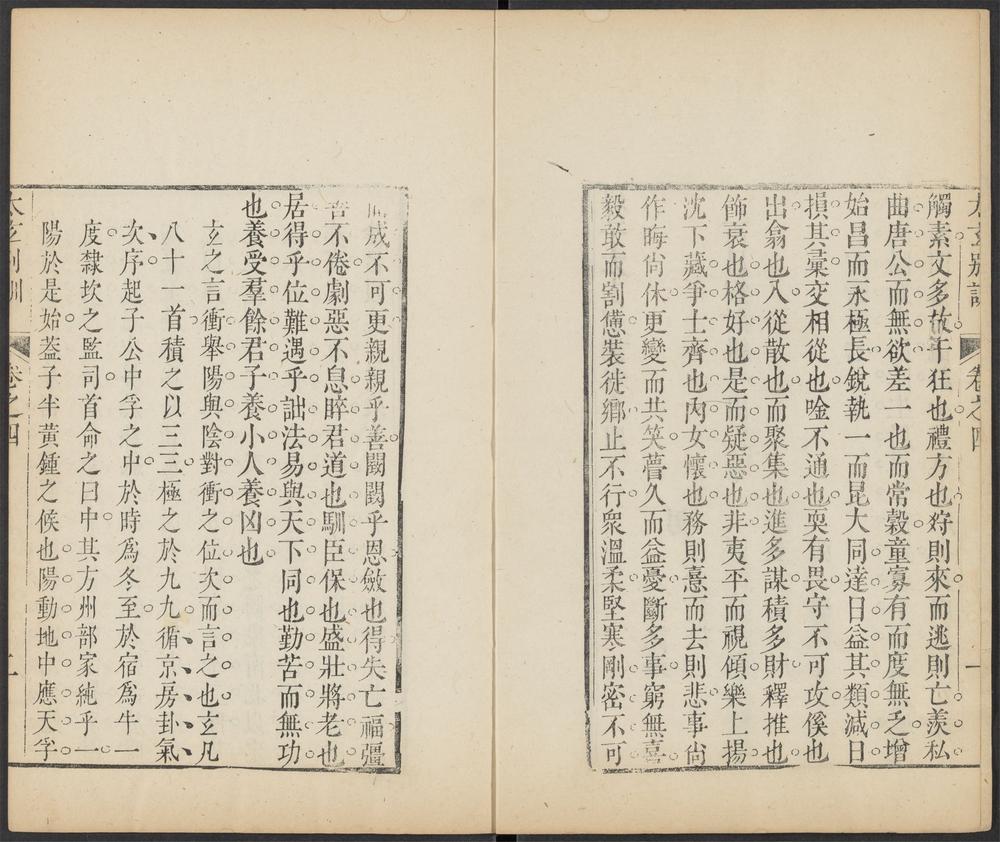 太玄別訓 卷之四 一
觸素文多故干狂也禮方也㝊則來而逃則亡羨私
曲唐公而無欲差一也而常穀童寡有而度無乏增
始昌而永極長銳執一而昆大同達日益其類減日
損其彙交相從也唫不通也耎有畏守不可攻傒也
出翕也入從散也而聚集也進多謀積多財釋推也
飾衰也格好也是而疑惡也非夷平而視傾樂上揚
沈下藏爭士齊也內女懷也務則憙而去則悲事尙
作晦尙休更變而共笑瞢久而益憂斷多事窮無喜
毅敢而割憊裝徙鄉止不行衆溫柔堅寒剛密不可
成不可更親親乎善闞闞乎恩斂也得失亡福彊
不倦劇惡不息睟君道也馴臣保也盛壯將老也
居得乎位難遇乎詘法易與天下同也勤苦而無功
也養受羣餘君子養小人養凶也
玄之言衝舉陽與陰對衝之位次而言之也玄凡
八十一首積之以三三極之於九九循京房卦氣
次序起子公中孚之中於時爲冬至於宿爲牛一
度隸坎之監司首命之曰中其方州部家純乎一
陽於是始葢子半黃鍾之候也陽動地中應天孚
太玄別訓 卷之四 一